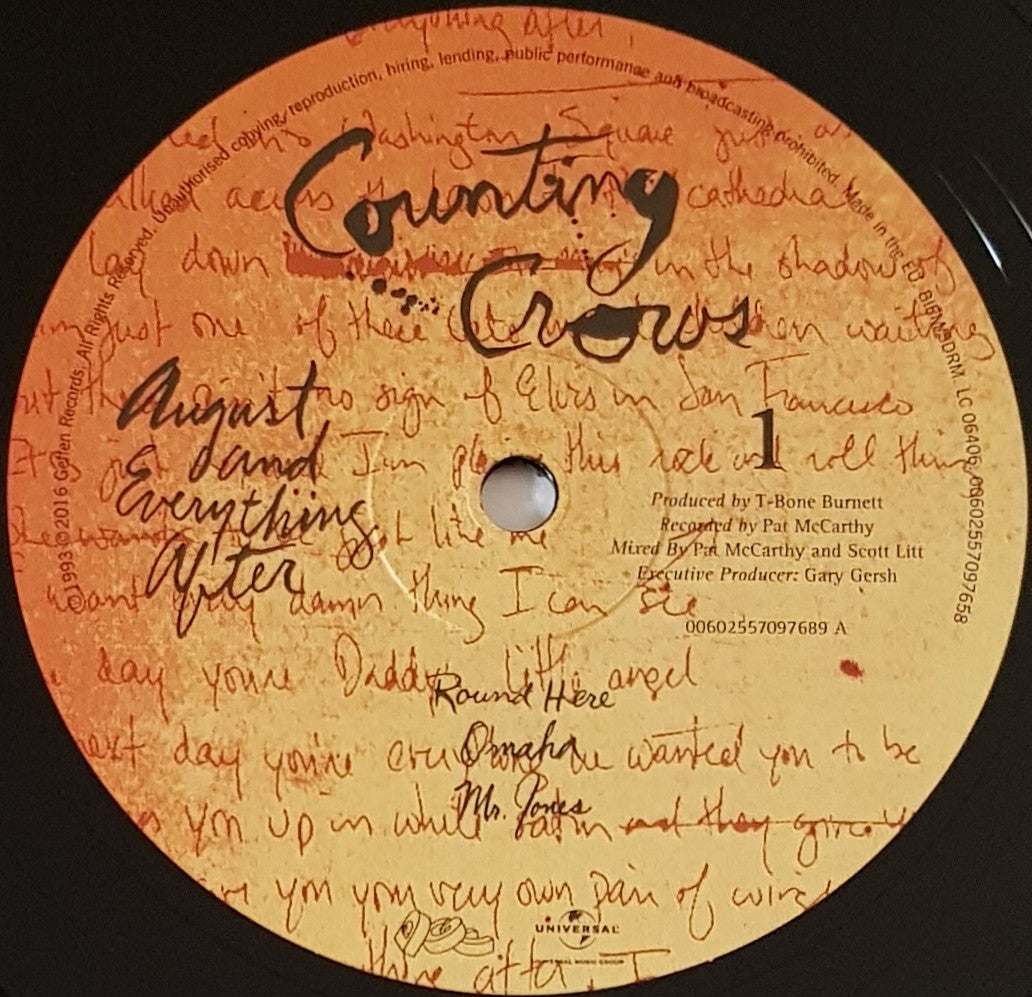 Everything After,
Unauthorised copying, reproduction, hiring, lending, public performance and broadcasting prohibited. Made in the EU. BIEM/SDRM. LC 06406. 00602557097658
℗1993 ©2016 Geffen Records. All Rights Reserved.
Counting
Crows
Washington Square just
across the cathedral
lay down in the shadow of
just one of these waiting
sign of Elvis in San Francisco
this rock and roll thing
like me
want damn thing I can see
day you're Daddy's little angel
next day you're wanted you to be
you up in white satin and they give
you your very own pair of wings
after, I
August
and
Everything
After
1
Produced by T-Bone Burnett
Recorded by Pat McCarthy
Mixed By Pat McCarthy and Scott Litt
Executive Producer: Gary Gersh
00602557097689 A
Round Here
Omaha
Mr. Jones
UNIVERSAL
UNIVERSAL MUSIC GROUP